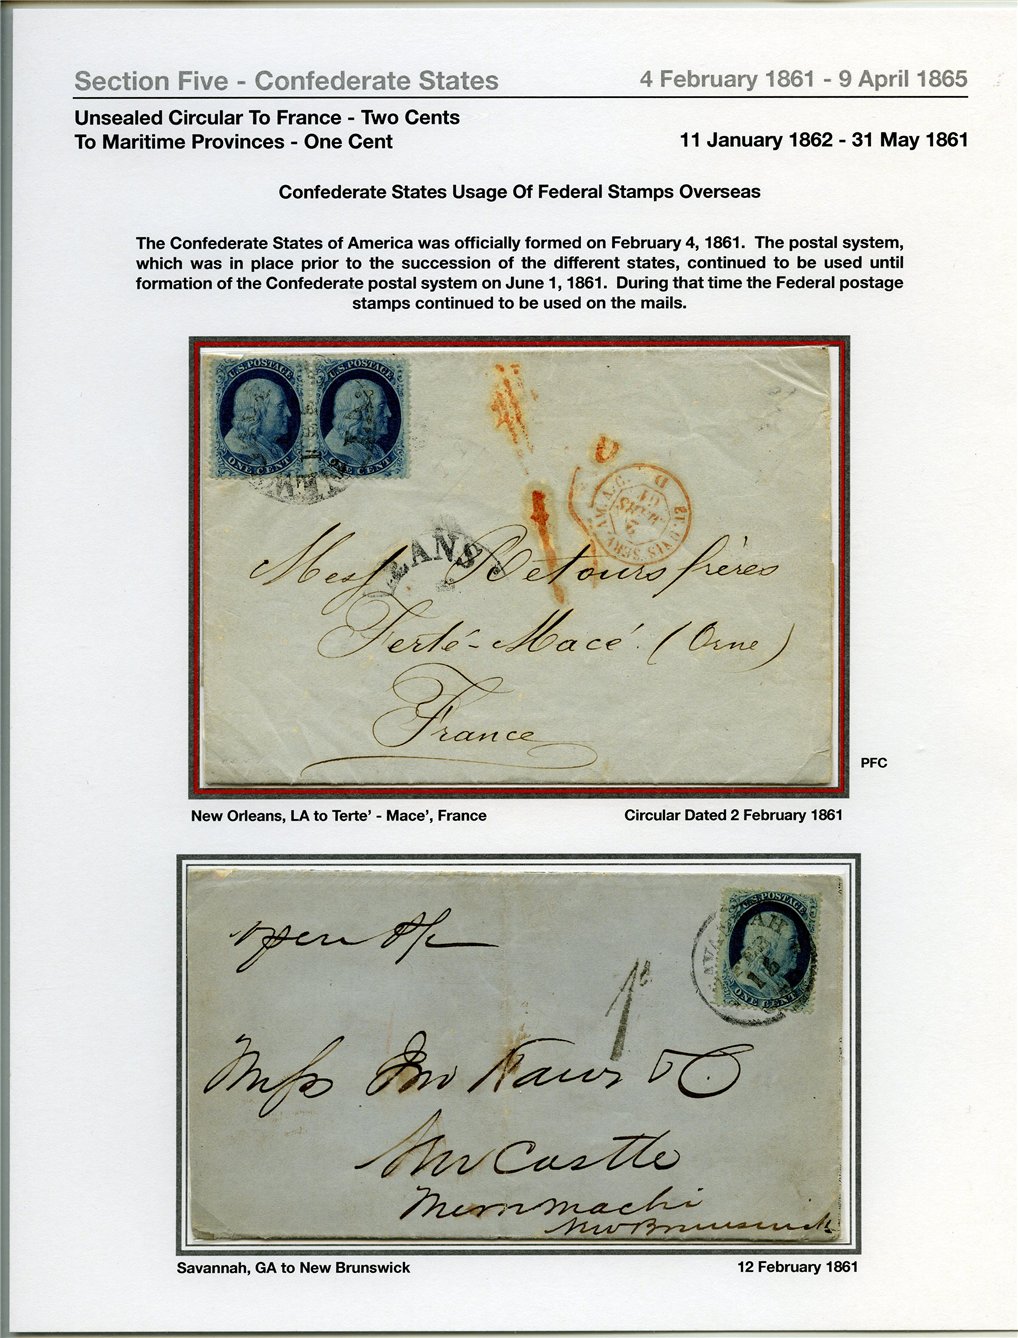 Section Five - Confederate States
4 February 1861 - 9 April 1865
Unsealed Circular To France - Two Cents
To Maritime Provinces - One Cent
11 January 1862 - 31 May 1861
Confederate States Usage Of Federal Stamps Overseas
The Confederate States of America was officially formed on February 4, 1861. The postal system,
which was in place prior to the succession of the different states, continued to be used until
formation of the Confederate postal system on June 1, 1861. During that time the Federal postage
stamps continued to be used on the mails.
U.S. POSTAGE
ONE CENT
U.S. POSTAGE
ONE CENT
LEANS
Messrs
frères
Ferté-Macé (Orne)
France
PFC
New Orleans, LA to Terte' - Mace', France
Circular Dated 2 February 1861
U.S. POSTAGE
SAVANNAH
FEB
ONE CENT
open
1
Castle
New Brunswick
Savannah, GA to New Brunswick
12 February 1861